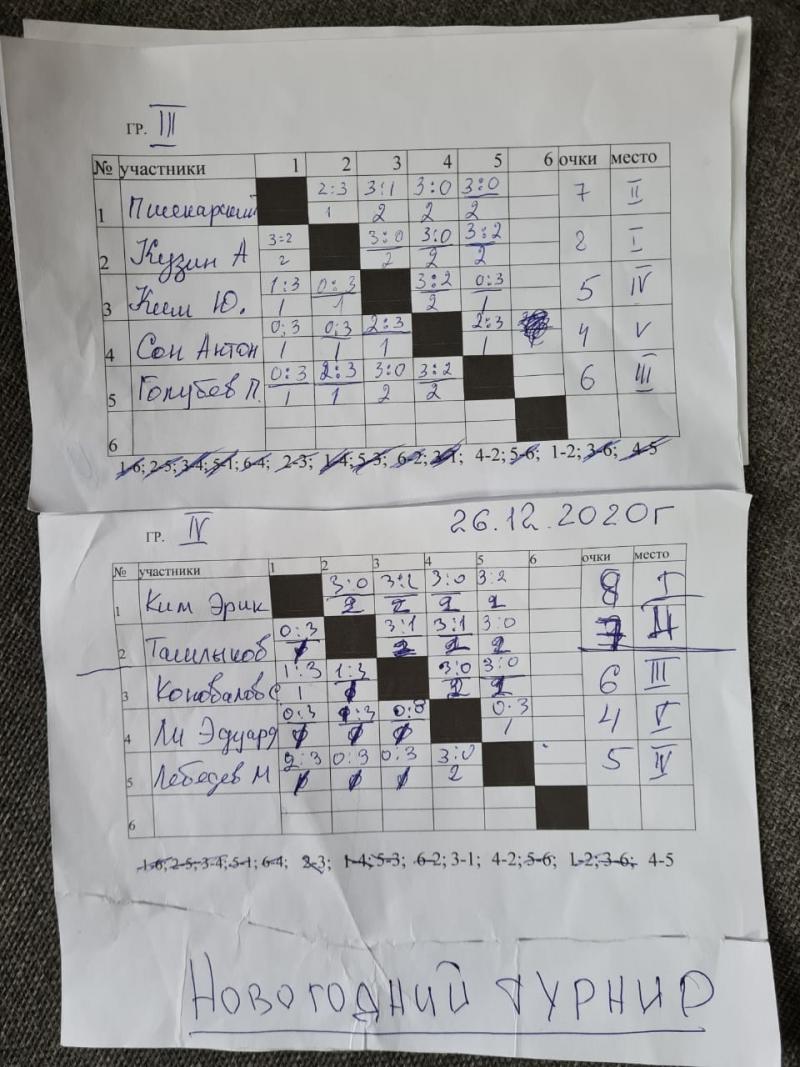 ГР. III
№ участники 1 2 3 4 5 6 очки место
2:3 3:1 3:0 3:0
1 7 II
1 2 2 2
3:2 3:0 3:0 3:2
2 Кузин А I
2 2 2 2
1:3 0:3 3:2 0:3
3 Ким Ю. 5 IV
1 1 2 1
0:3 0:3 2:3 2:3
4 Сон Антон 4 V
1 1 1 1
0:3 2:3 3:0 3:2
5 Голубев П. 6 III
1 1 2 2
6
1-6; 2-5; 3-4; 5-1; 6-4; 2-3; 1-4; 5-3; 6-2; 3-1; 4-2; 5-6; 1-2; 3-6; 4-5
ГР. IV 26.12.2020г
№ участники 1 2 3 4 5 6 очки место
3:0 3:0 3:2
1 Ким Эрик 8 I
2 2 2 2
0:3 3:1 3:1 3:0
2 Ташлыков 7 II
1 2 2 2
1:3 1:3 3:0 3:0
3 Коновалов С 6 III
1 1 2 2
0:3 1:3 0:3 0:3
4 Ли Эдуард 4 V
1 1 1 1
2:3 0:3 0:3 3:0
5 Лебедев М 5 IV
1 1 1 2
6
1-6; 2-5; 3-4; 5-1; 6-4; 2-3; 1-4; 5-3; 6-2; 3-1; 4-2; 5-6; 1-2; 3-6; 4-5
Новогодний турнир